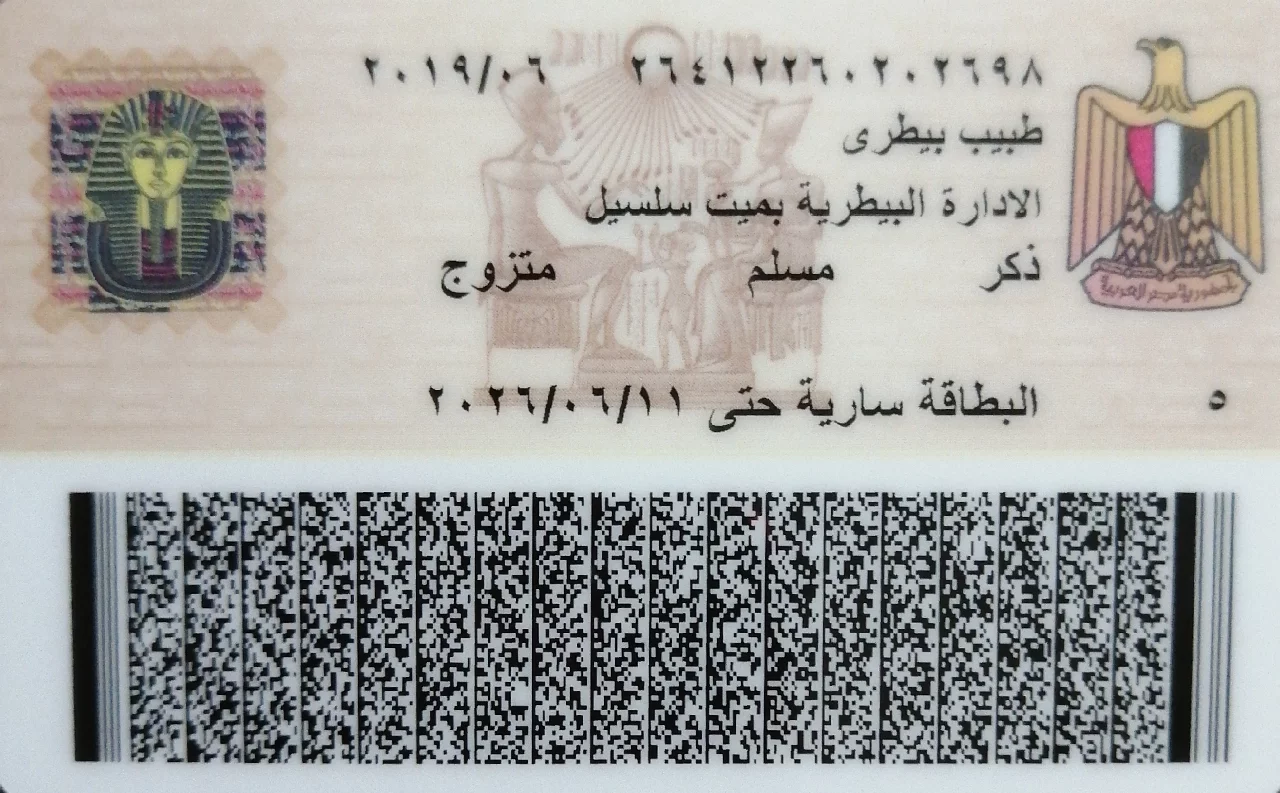 ٢٦٤١٢٢٦٠٢٠٢٦٩٨ ٢٠١٩/٠٦
طبيب بيطرى
الادارة البيطرية بميت سلسيل
ذكر مسلم متزوج
البطاقة سارية حتى ٢٠٢٦/٠٦/١١
٥